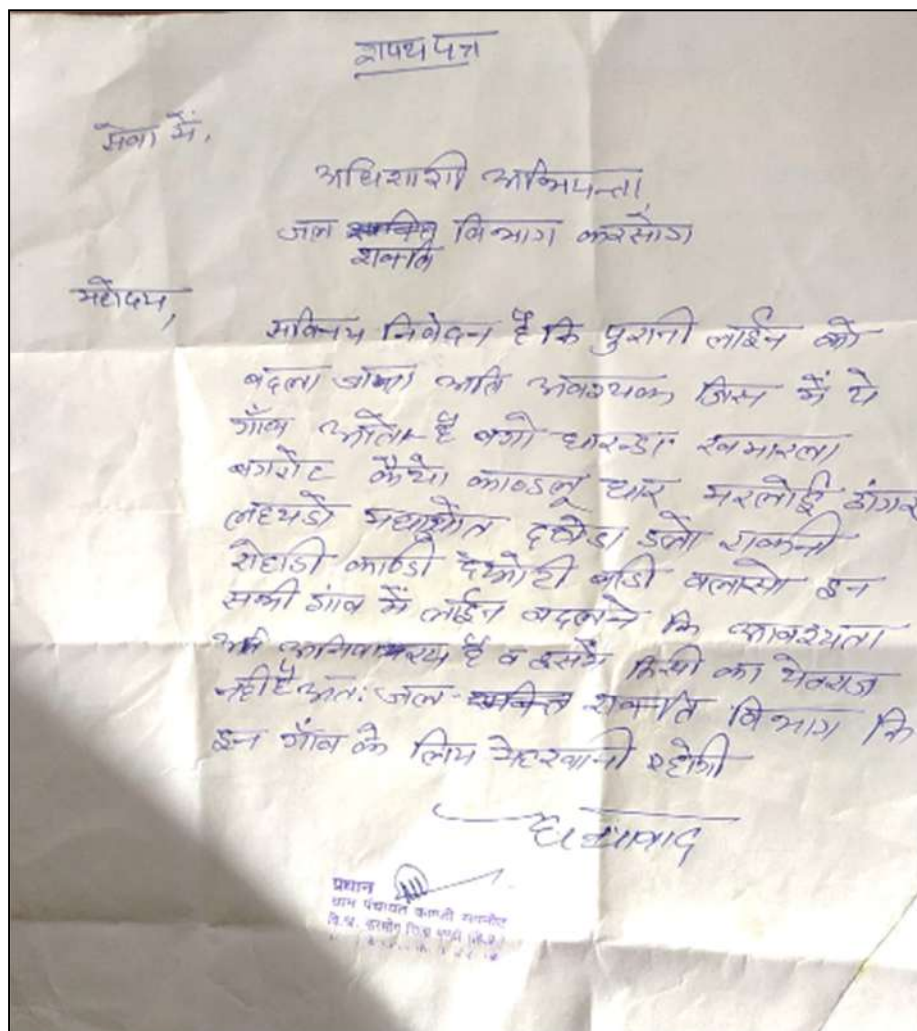 शपथ पत्र
सेवा में,
अधिशाशी अभियन्ता,
जल विभाग करसोग
शक्ति
महोदय,
सविनय निवेदन है कि पुरानी लाईन को
बदला जाना अति अवश्यक जिस में ये
गाँव आता है बगो धारन्डा खमारला
बगरोट कैथो काण्डलू धार मरलोई डांगर
दछोडा डलो शकनी
रोहाडी काण्डी देकोटी बाडी वलासो इन
सभी गांव में लाईन बदलने कि आवश्यता
अति है व इसमें किसी का येतराज
नही है अत: जल शक्ति विभाग कि
इन गाँव के लिय मेहरवानी रहेगी
धन्यावाद
प्रधान
ग्राम पंचायत काण्डी सपनोट
वि.ख. करसोग जिला मण्डी (हि.प्र.)